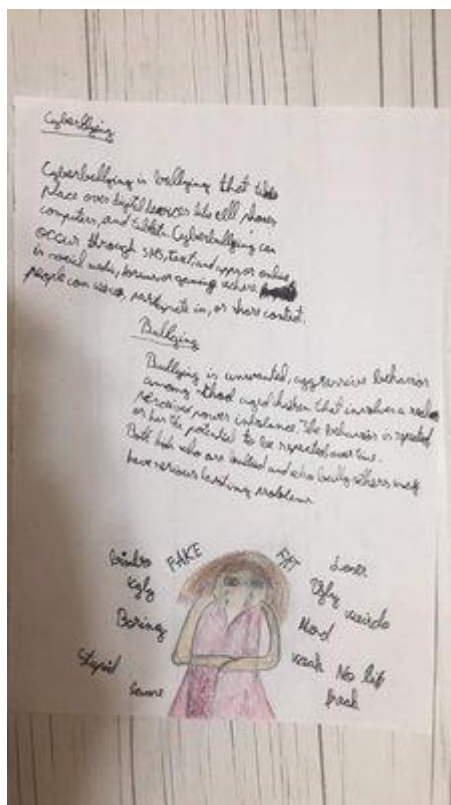 Cyberbllying
Cyberbullying is bullying that take
place over digital devices like cell phones
computers, and tablets. Cyberbullying can
occur through SMS, text, and apps, or online
in social media, forums, or gaming where
people can view, participate in, or share content.
Bullying
Bullying is unwanted, aggressive behavior
among school aged children that involves a real or
perceived power imbalance. The behavior is repeated
or has the potential to be repeated, over time.
Both kids who are bullied and who bully others may
have serious lasting problems
FAKE FAT Loser
Ugly Ugly weirdo
Boring Nerd
Stupid weak No life
freak